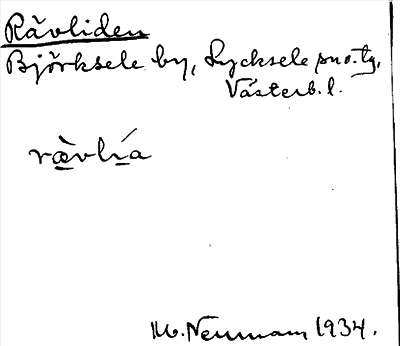 Rävliden
Björksele by, Lycksele sn o. tg,
Västerb. l.
ræ̀vlía
M. Neuman 1934.